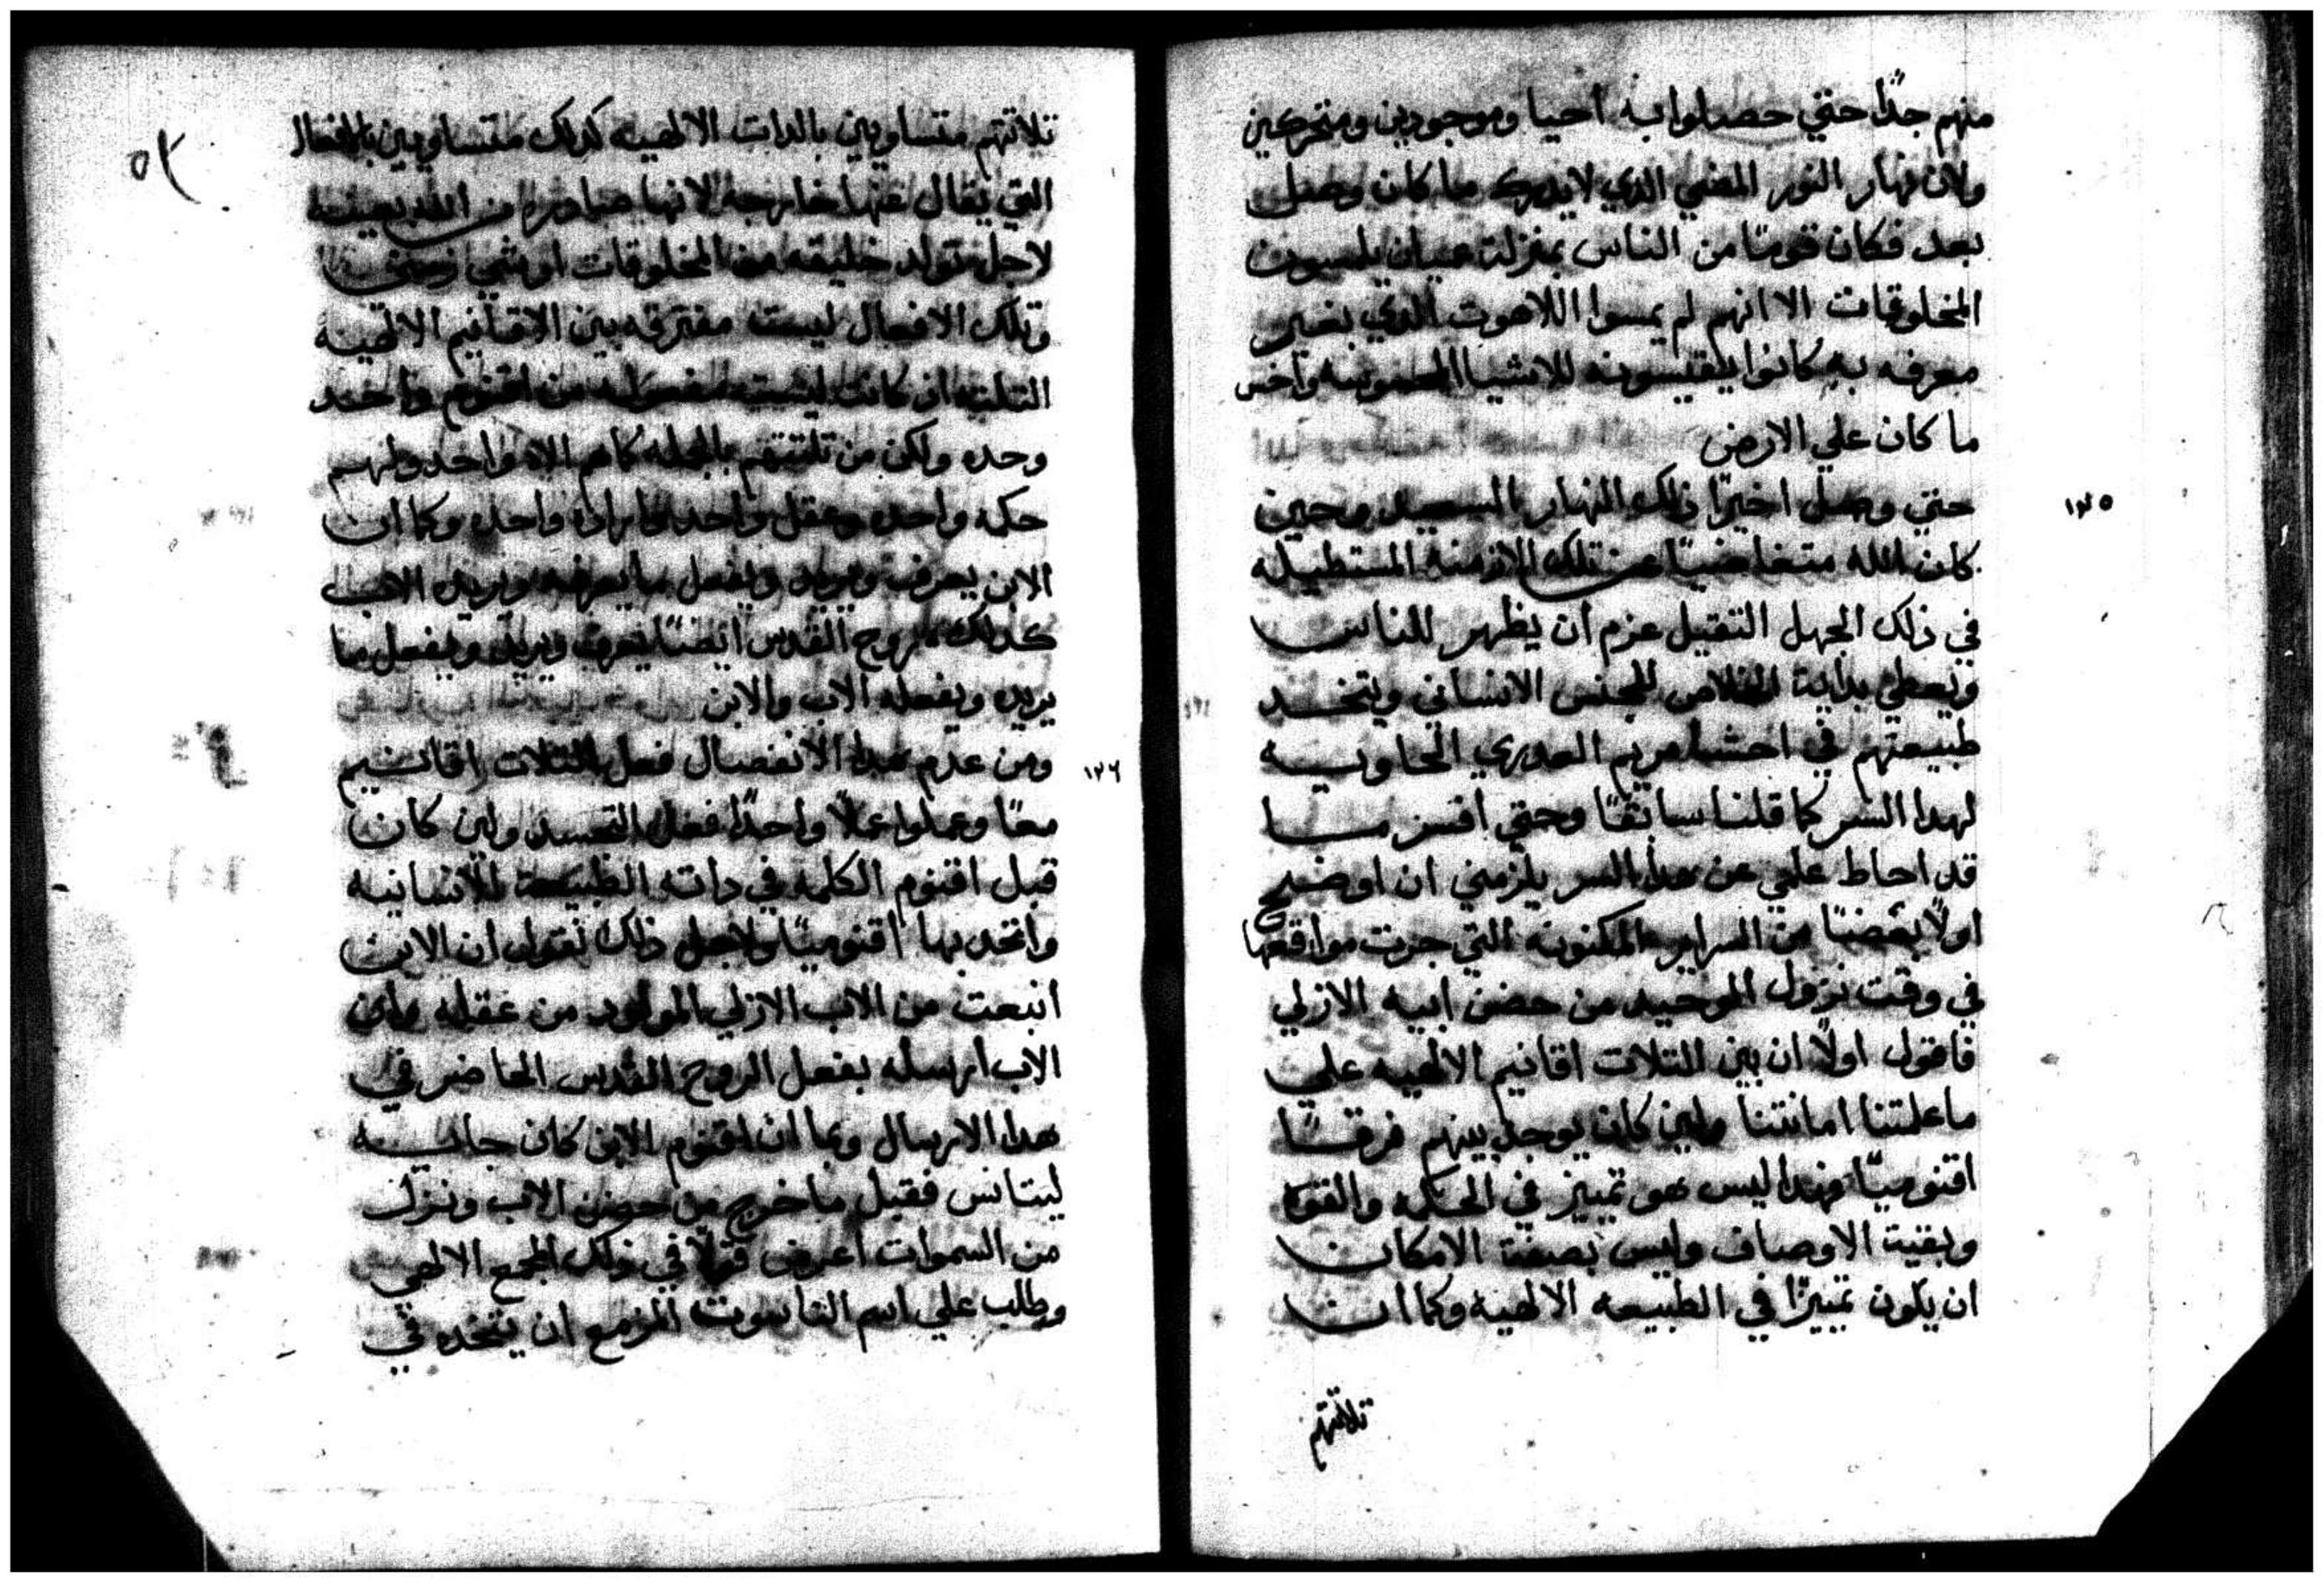 منهم جدًا حتي حصلوا به احيا وموجودين ومتحركين
ولان نهار النور المضي الدي لايدرك ما كان وصل
بعد فكان قومًا من الناس بمنزلة عميان يلمسون
المخلوقات الا انهم لم يمسوا اللاهوت الدي بغير
معرفه به كانوا يقيسونه للاشيا واخس
ما كان علي الارض
١٢٥
حتي وصل اخيرًا ذلك النهار السعيد وحين
كان الله متغاضيًا عن تلك الازمنه المستطيله
في ذلك الجهل التقيل عزم ان يظهر للناس
ويعطي بداية الخلاص للجنس الانساني ويتخد
طبيعتهم في احشا مريم العدري الحاويه
لهدا السر كما قلنا سابقًا وحتي افسر ما
قد احاط علمي عن هدا السر يلزمني ان اوضح
اولًا بعضًا من السراير المكنونه التي جرت مواقعها
في وقت نزول الوحيد من حضن ابيه الازلي
فاقول اولًا ان بين التلات اقانيم الالهيه علي
ما علمتنا امانتنا ولين كان يوجد بينهم فرقًا
اقنوميًا فهدا ليس هو تمييز في الحكمه والقوه
وبقية الاوصاف وليس بصفة الامكان
ان يكون تمييزًا في الطبيعه الالهيه وكما ان
تلاتتهم
٥٢
تلاتتهم متساويين بالدات الالهيه كدلك متساويين بالافعال
التي يقال عنها خارجه لانها صادره من الله بعينه
لاجل تولد خليقه من المخلوقات او شي زمني
وتلك الافعال ليست مفترقه بين الاقانيم الالهيه
التلته ان كانت ليست مفعوله من اقنوم واحد
وحده ولكن من تلتتهم بالجمله كما هم الاه واحد ولهم
حكمه واحده وعقل واحد واراده واحده وكما ان
الابن يعرف ويريد ويفعل ما يعرفه ويريده الاب
كدلك روح القدس ايضًا يعرف ويريد ويفعل ما
يريده ويفعله الاب والابن
١٢٦
ومن عدم هدا الانفصال فعل التلات اقانيم
معًا وعملوا عملًا واحدًا فعل التجسد ولين كان
قبل اقنوم الكلمه في داته الطبيعة الانسانيه
واتحد بها اقنوميًا ولاجل ذلك نقول ان الابن
انبعت من الاب الازلي المولود من عقله وان
الاب ارسله بفعل الروح القدس الحاضر في
هدا الارسال وبما ان اقنوم الابن كان جايه
ليتانس فقبل ما خرج من حضن الاب ونزل
من السموات اعرض قولًا في ذلك المجمع الالهي
وطلب علي اسم الناسوت المزمع ان يتخده في